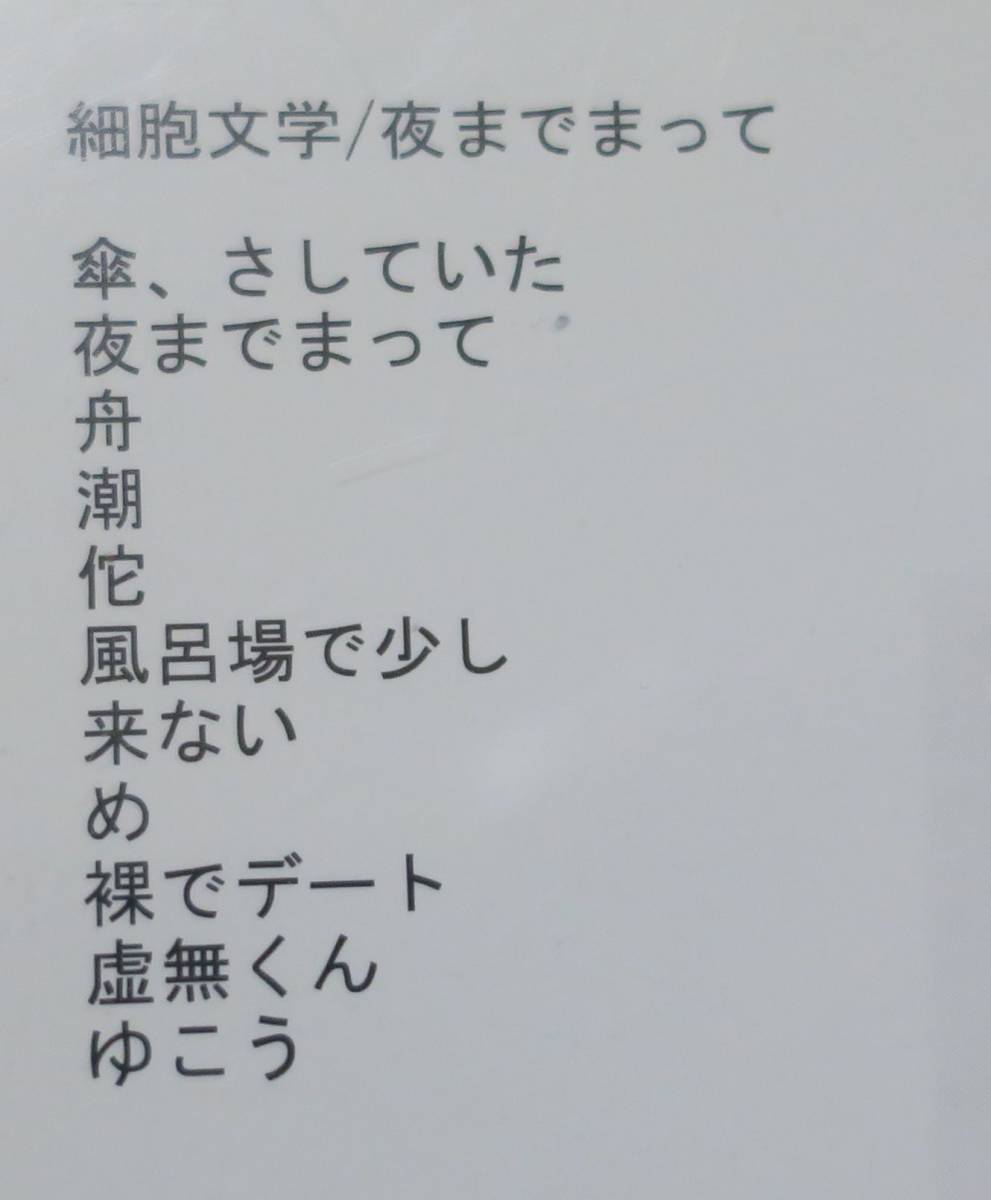 細胞文学/夜までまって
傘、さしていた
夜までまって
舟
潮
佗
風呂場で少し
来ない
め
裸でデート
虚無くん
ゆこう